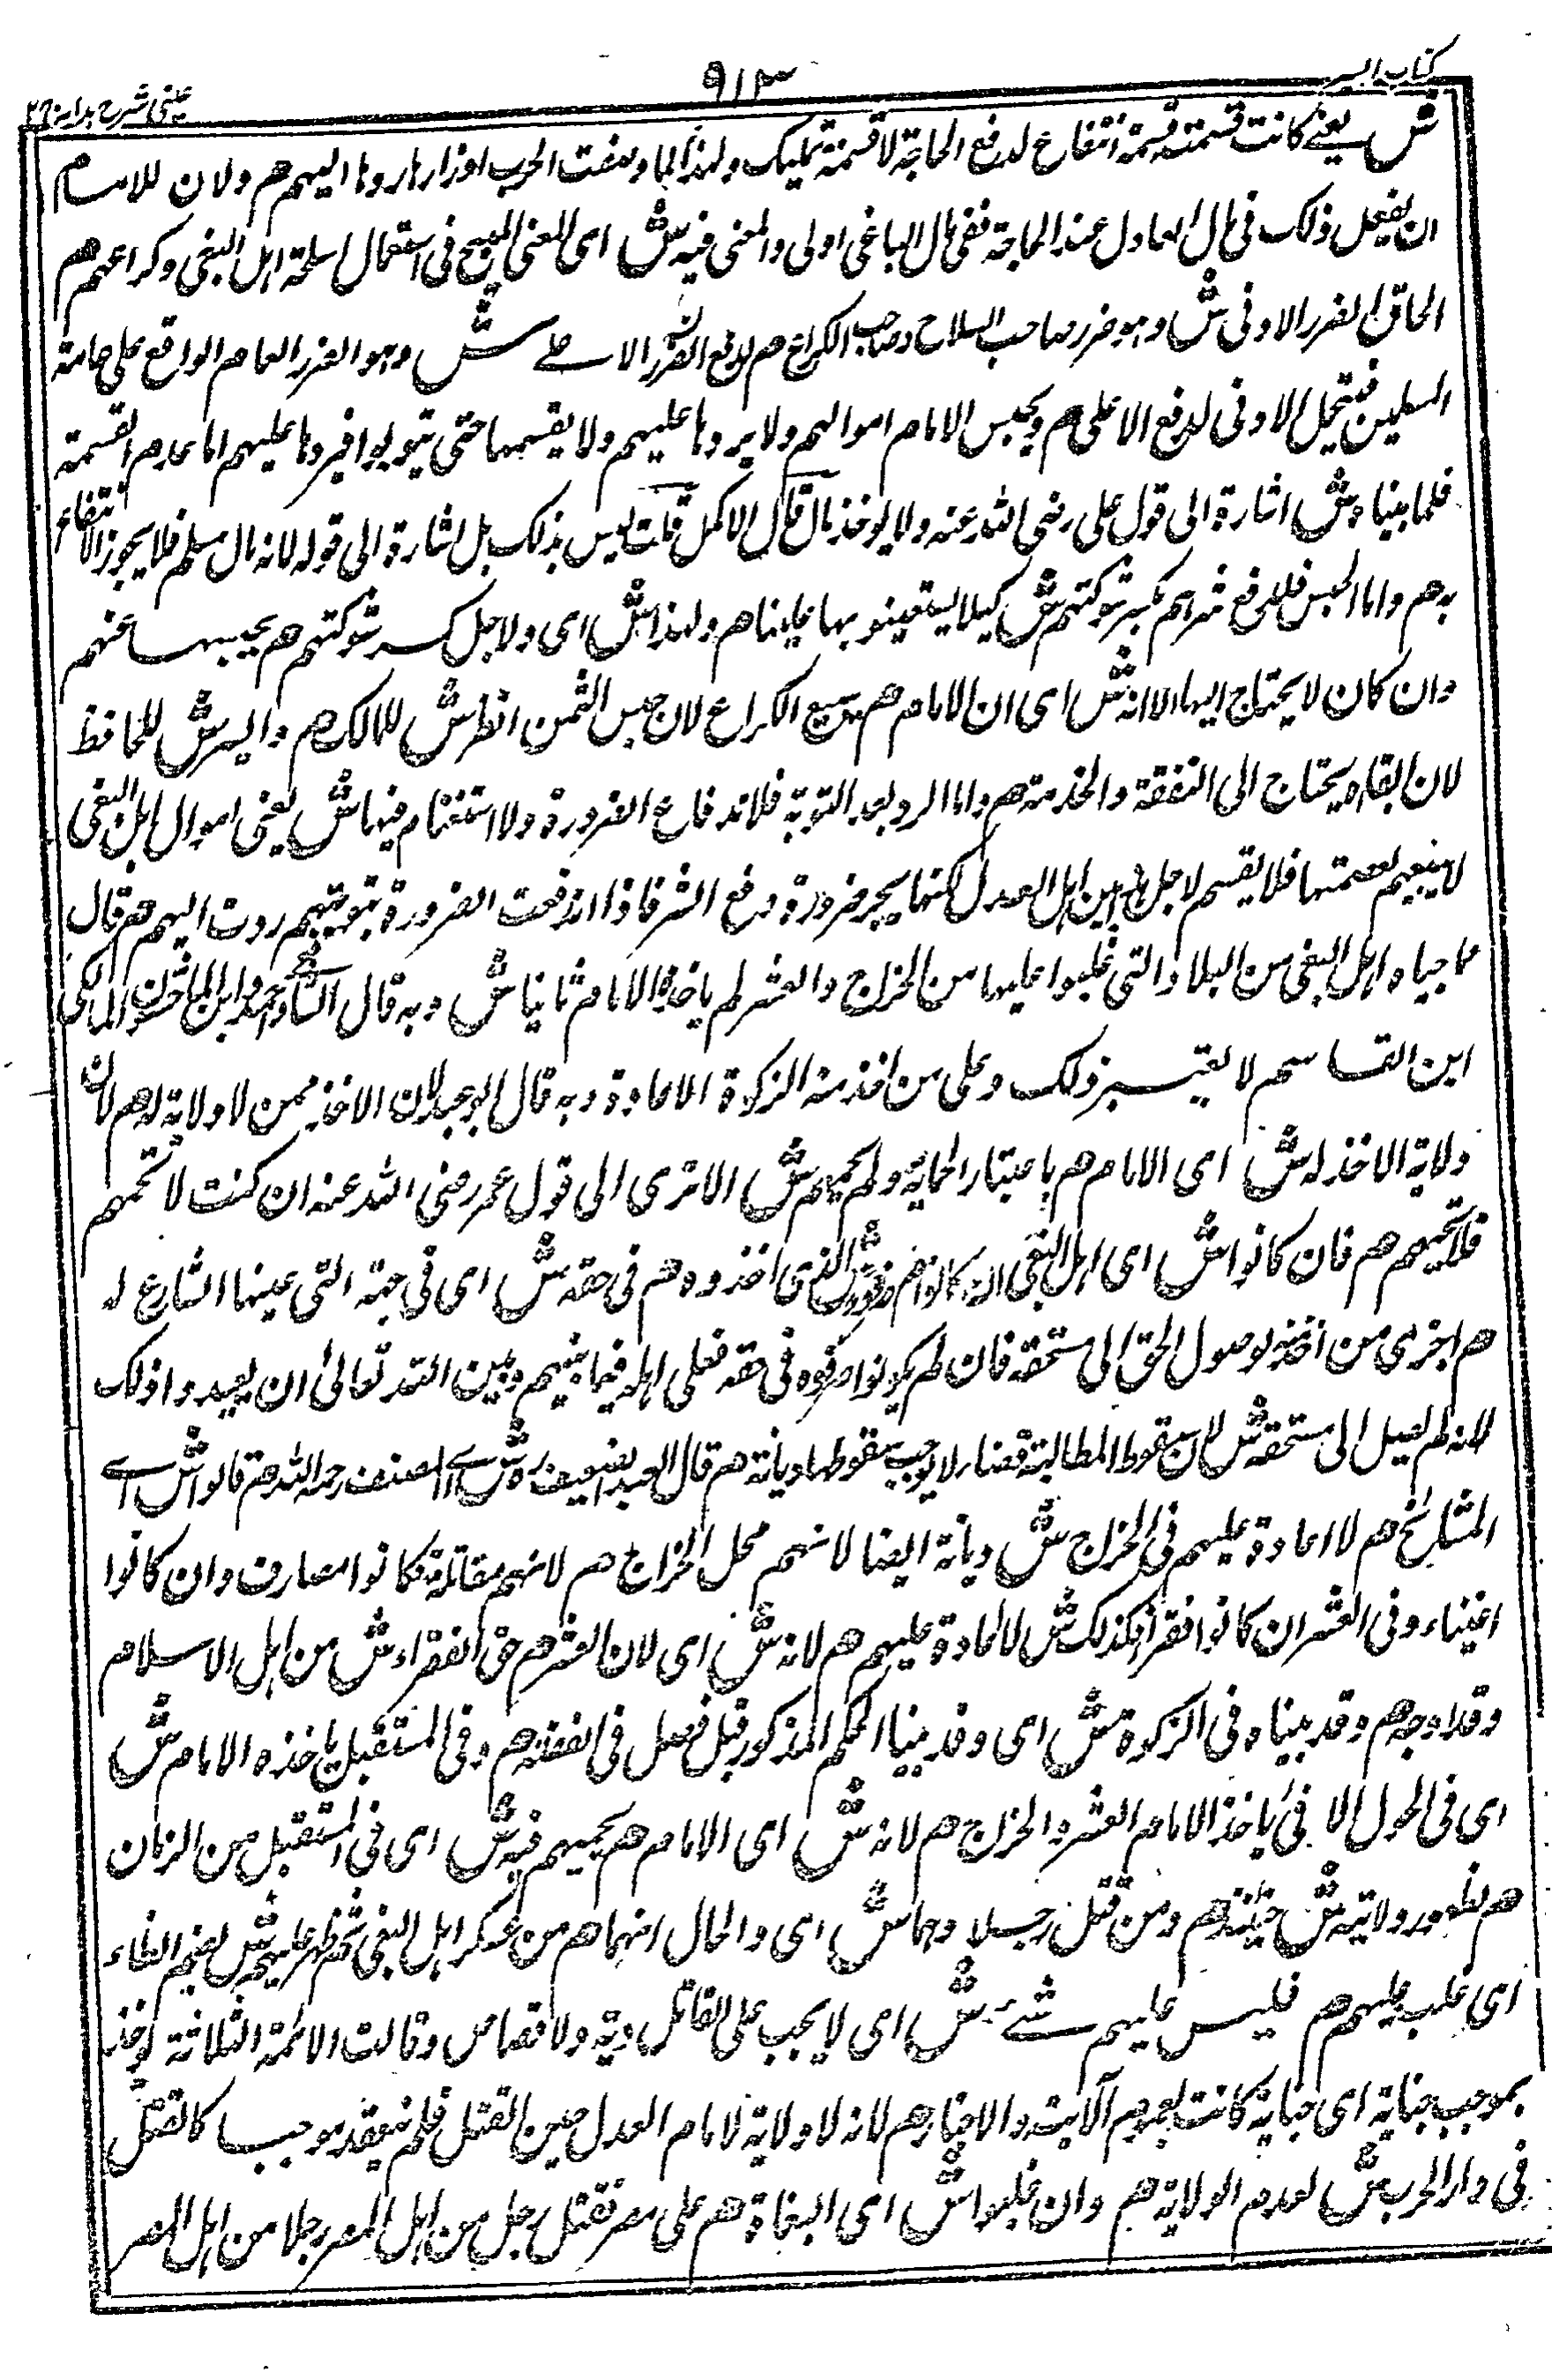 كتاب السير
٩١٣
عيني شرح هداية ج٢
ش يعنے كانت قسمته قسمة انتفاع لدفع الحاجة لا قسمة تمليك ولهذا لما وضعت الحرب اوزارها ردها اليهم هم ولان للامام
ان يفعل ذلك فى مال العادل عند الحاجة ففى مال الباغى اولى والمعنى فيه ش اى المعنى المبيح فى استعمال اسلحة اهل البغى وكراعهم هم
الحاق الضرر الادنى ش وهو ضرر صاحب السلاح وصاحب الكراع هم لدفع الضرر الاعلے ش وهو الضرر العام الواقع على عامة
المسلمين فيتحمل الادنى لدفع الاعلى هم ويحبس الامام اموالهم ولا يردها عليهم ولا يقسمها حتى يتوبوا فيردها عليهم اما عدم القسمة
فلما بيناه ش اشارة الى قول على رضى الله عنه ولا يوخذ مال قال الاكمل قلت ليس بذلك بل اشارة الى قوله لانه مال مسلم فلا يجوز الانتفاع
به هم واما الحبس فلدفع شرهم بكسر شوكتهم ش كيلا يستعينوا بها علينا هم ولهذا ش اى ولاجل كسر شوكتهم هم يحبسها عنهم
وان كان لا يحتاج اليها الا انه ش اى ان الامام هم يبيع الكراع لان حبس الثمن انظر ش للمالك هم وايسر ش للحافظ
لان ابقاءه يحتاج الى النفقة والخدمة هم واما الرد بعد التوبة فلاندفاع الضرورة ولا استغنام فيها ش يعنى اموال اهل البغى
لا يغنم لعصمتها فلا يقسم لاجل هذا بين اهل العدل لكنها يحجر ضرورة دفع الشر فاذا اندفعت الضرورة بتوبتهم ردت اليهم هم قال
ما جباه اهل البغى من البلاد التى غلبوا عليها من الخراج والعشر لم ياخذه الامام ثانيا ش وبه قال الشافعى واحمد وابن الماجشون المالكى
ابن القاسم لا يعتبر ذلك وعلى من اخذ منه الزكوة الاعادة وبه قال ابو عبيد لان الاخذ ممن لا ولاية له هم لان
ولاية الاخذ له ش اى الامام هم باعتبار الحماية ولم يحمهم ش الا ترى الى قول عمر رضى الله عنه ان كنت لا تحمهم
فلا تجبهم هم فان كانوا ش اى اهل البغى الذين كانوا هم صرفوه ش الذى اخذوه هم فى حقه ش اى فى جهته التى عينها الشارع له
هم اجزى من اخذ منه لوصول الحق الى مستحقه فان لم يكونوا صرفوه فى حقه فعلى اهله فيما بينهم وبين الله تعالى ان يعيدوا ذلك
لانه لم يصل الى مستحقه ش لان سقوط المطالبة قضاء لا يوجب سقوطها ديانة هم قال العبد الضعيف ره ش اے المصنف رحمه الله هم قالوا ش اے
المشايخ هم لا اعادة عليهم فى الخراج ش ديانة ايضا لانهم محل الخراج هم لانهم مقاتلة فكانوا مصارف وان كانوا
اغنياء وفى العشر ان كانوا فقراء فكذلك ش لا اعادة عليهم هم لانه ش اى لان العشر هم حق الفقراء ش من اهل الاسلام
وقد اوجه هم وقد بيناه فى الزكوة ش اى وقد بينا الحكم المذكور قبل فصل فى الفضة هم وفى المستقبل ياخذه الامام ش
اى فى الحول الآتى ياخذ الامام العشر والخراج هم لانه ش اى الامام هم يحميهم فيه ش اى فى المستقبل من الزمان
هم لظهور ولايته ش حينئذ هم ومن قتل رجلا وهما ش اى والحال انهما هم من عسكر اهل البغى ثم ظهر عليهم ش بضم الظاء
اى غلب عليهم هم فليس عليهم شئ ش اى لا يجب على القاتل دية ولا قصاص وقالت الائمة الثلاثة يوخذ
بموجب جناية اى جناية كانت لعموم الآيت والاخبار هم لانه لا ولاية لامام العدل حين القتل فلم ينعقد موجبا كالقتل
فى دار الحرب ش لعدم الولاية هم وان غلبوا ش اى البغاة هم على مصر فقتل رجل من اهل المصر رجلا من اهل المصر